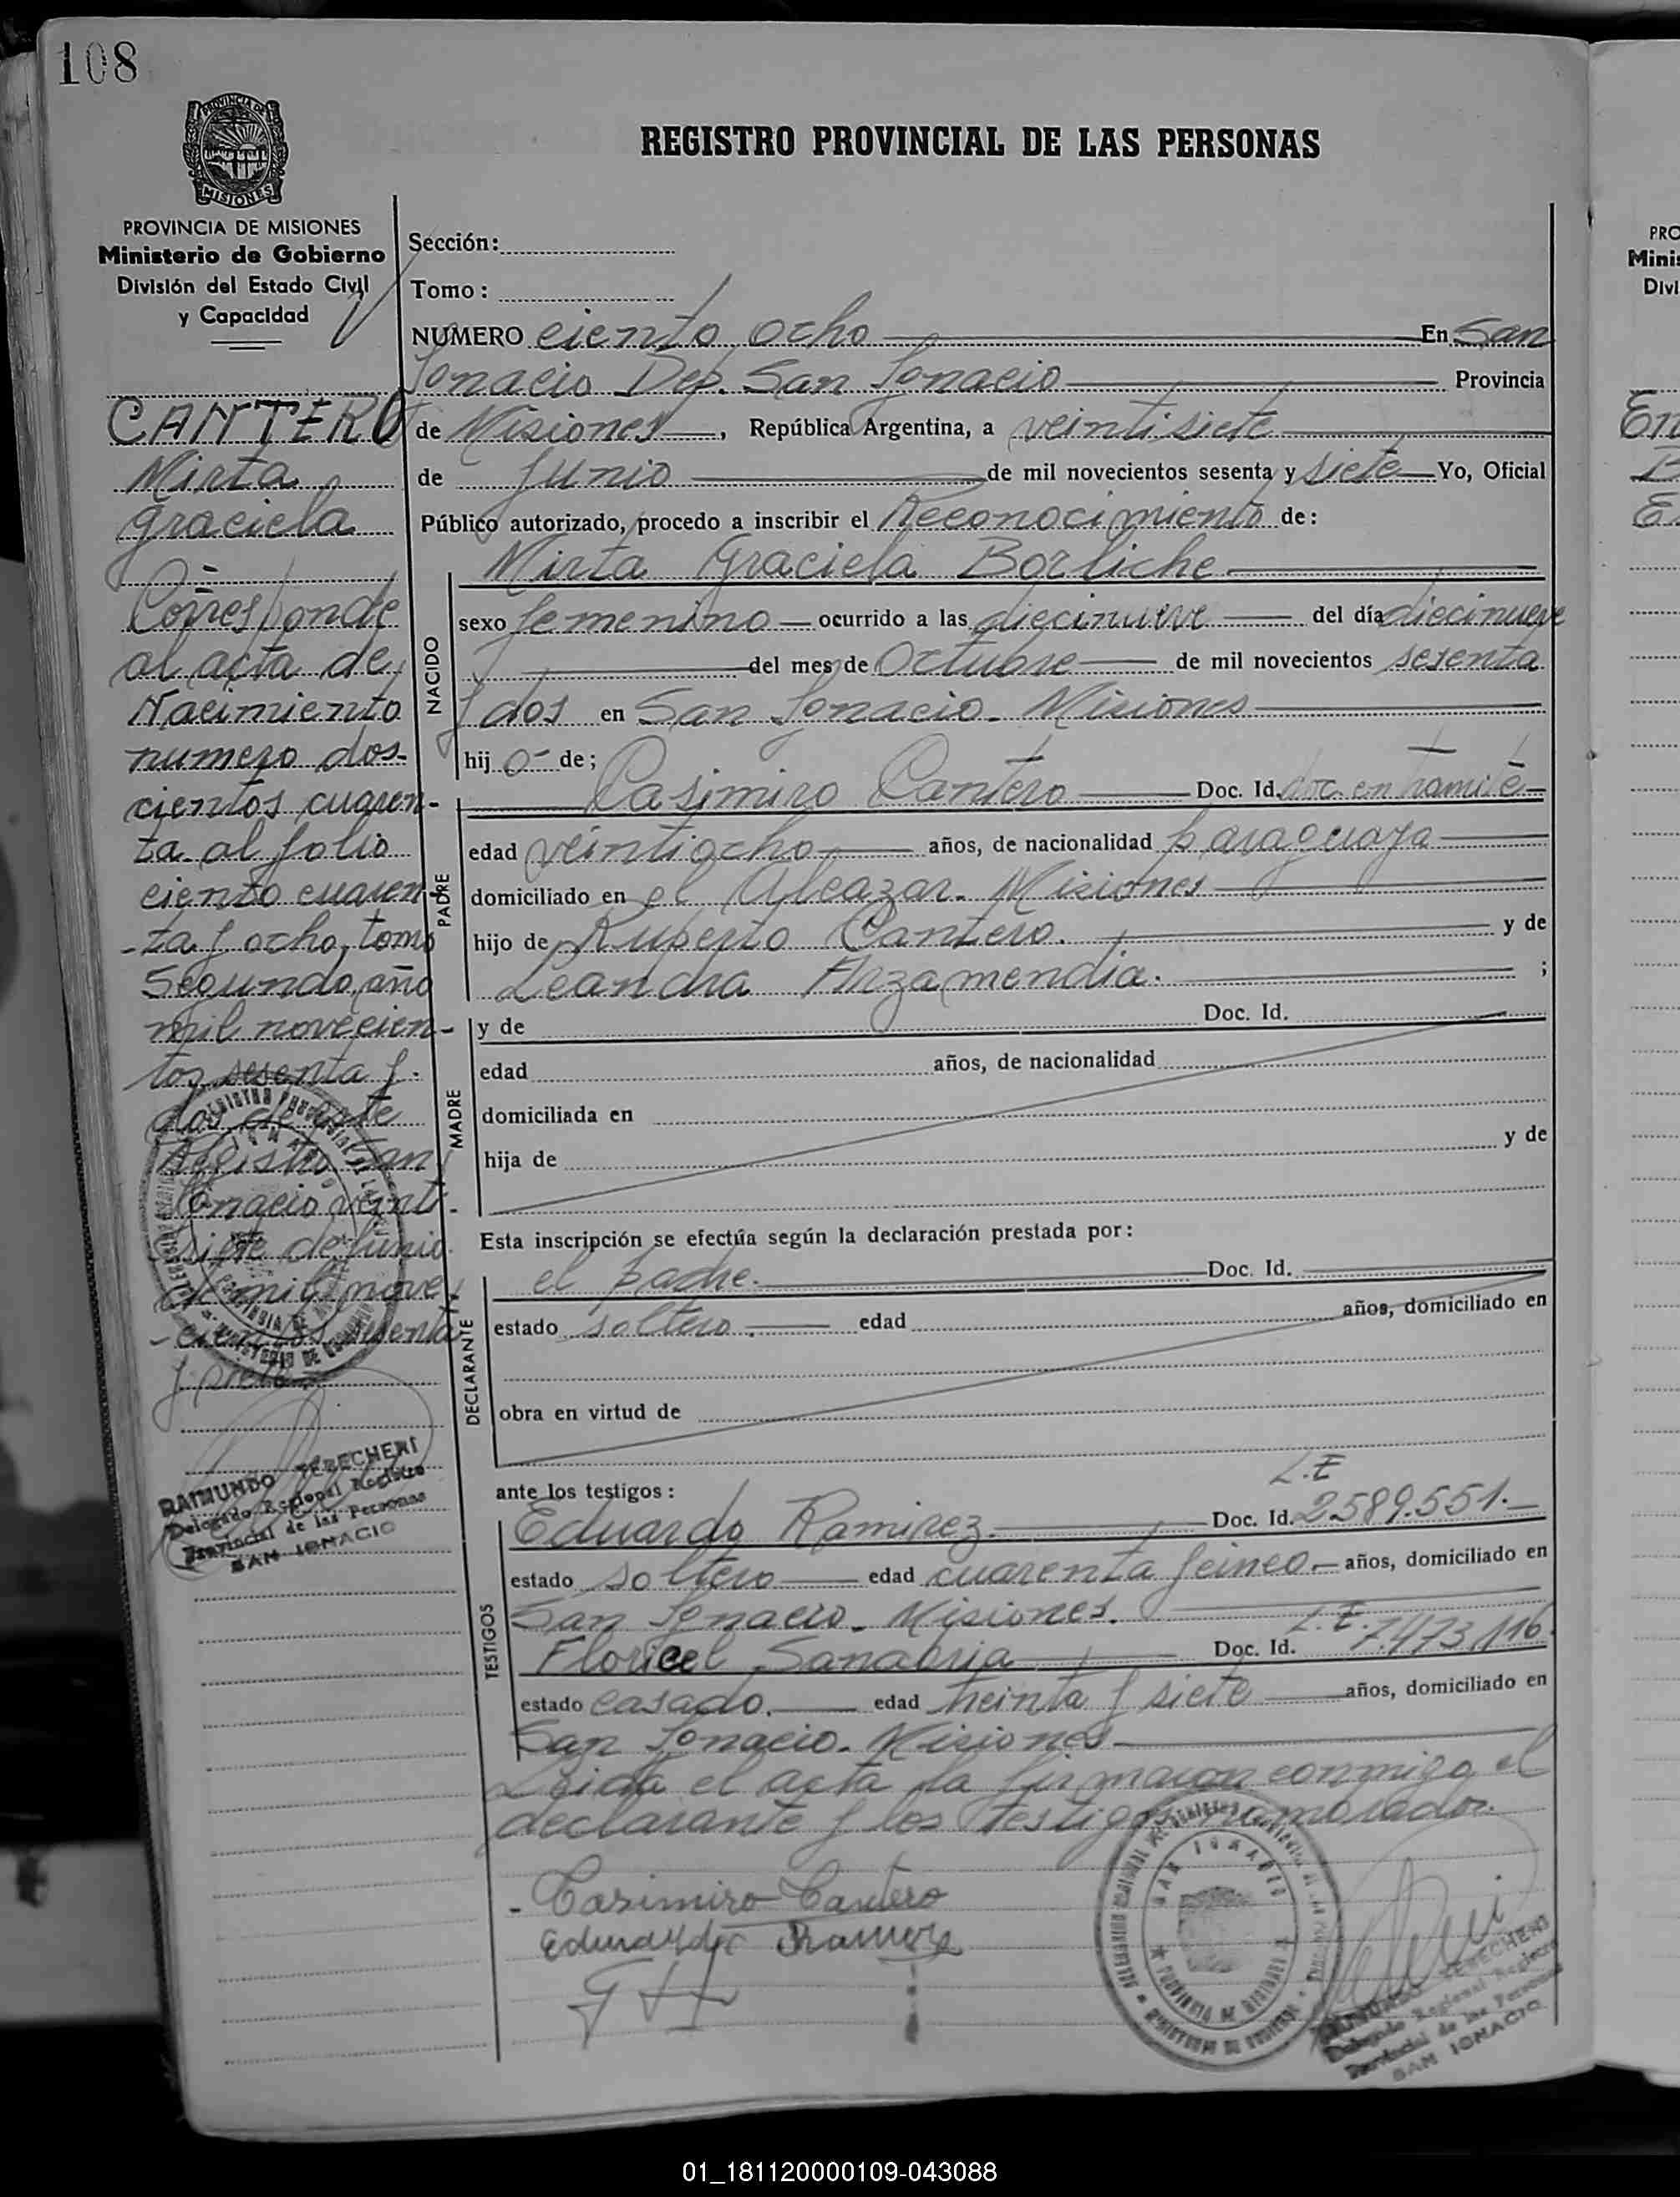 108
PROVINCIA DE MISIONES
MISIONES
REGISTRO PROVINCIAL DE LAS PERSONAS
PROVINCIA DE MISIONES
Ministerio de Gobierno
División del Estado Civil
y Capacidad
CANTERO
Mirta
Graciela
Corresponde
al acta de
Nacimiento
numero dos-
cientos cuaren-
ta al folio
ciento cuaren-
-ta y ocho, tomo
Segundo, año
mil novecien-
tos sesenta y
dos de este
Registro San
Ignacio veinti-
siete de junio
de mil nove-
-cientos sesenta
y siete
RAIMUNDO TERECHERI
Delegado Regional Registro
Provincial de las Personas
SAN IGNACIO
Sección:
Tomo:
NUMERO ciento ocho En San
Ignacio Dep. San Ignacio Provincia
de Misiones, República Argentina, a veintisiete
de Junio de mil novecientos sesenta y siete Yo, Oficial
Público autorizado, procedo a inscribir el Reconocimiento de:
Mirta Graciela Borliche
NACIDO
sexo femenino ocurrido a las diecinueve del día diecinueve
del mes de Octubre de mil novecientos sesenta
y dos en San Ignacio. Misiones
hij o de;
PADRE
Casimiro Cantero Doc. Id. doc. en tramite
edad veintiocho años, de nacionalidad paraguaya
domiciliado en el Alcazar. Misiones
hijo de Ruperto Cantero. y de
Leandra Arzamendia. ;
MADRE
y de Doc. Id.
edad años, de nacionalidad
domiciliada en
hija de y de
Esta inscripción se efectúa según la declaración prestada por:
DECLARANTE
el padre. Doc. Id.
estado soltero. edad años, domiciliado en
obra en virtud de
ante los testigos:
TESTIGOS
L.E
Eduardo Ramirez. Doc. Id. 2589.551.
estado soltero edad cuarenta y cinco. años, domiciliado en
San Ignacio. Misiones.
Floricel Sanabria Doc. Id. L.E. 7.473.116.
estado casado. edad treinta y siete años, domiciliado en
San Ignacio. Misiones
Leida el acta la firmaron conmigo el
declarante y los testigos
Casimiro Cantero
Eduardo Ramirez
SAN IGNACIO
PROVINCIA DE MISIONES
RAIMUNDO TERECHERI
Delegado Regional Registro
Provincial de las Personas
SAN IGNACIO
PRO
Minis
Divi
01_181120000109-043088